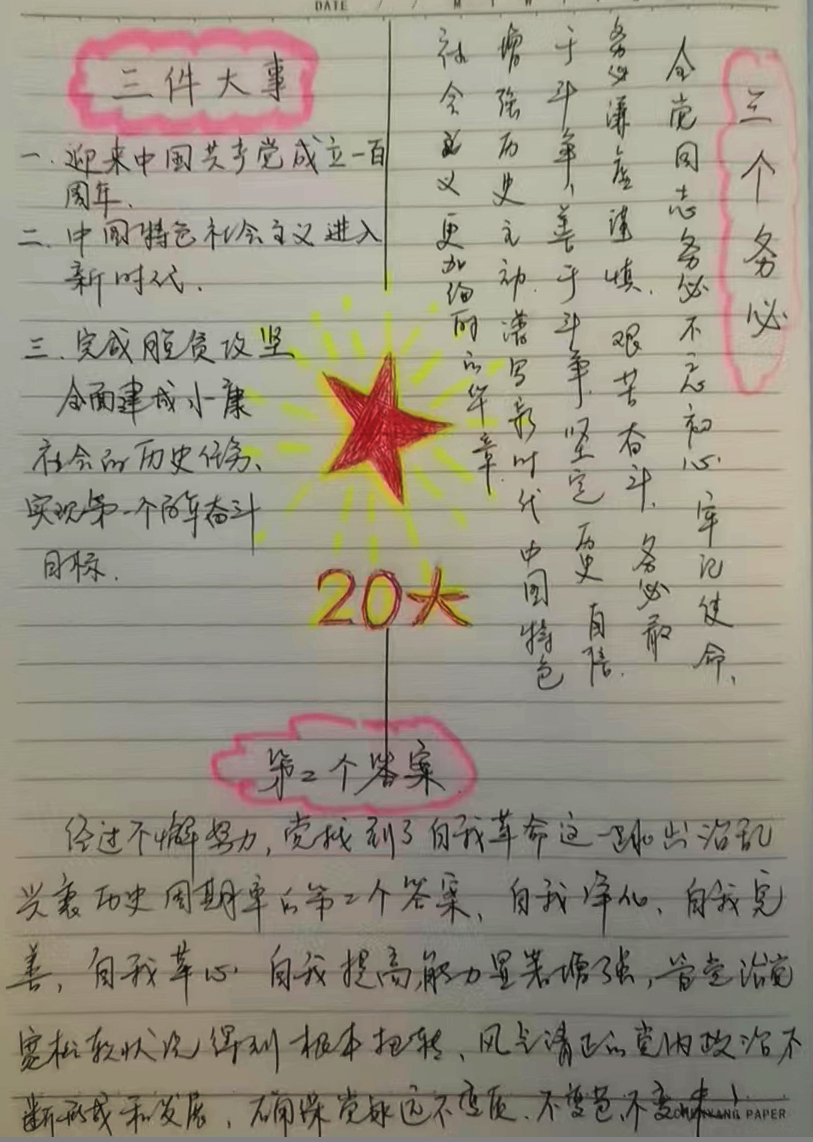 DATE
三件大事
一.迎来中国共产党成立一百
周年.
二.中国特色社会主义进入
新时代.
三.完成脱贫攻坚
全面建成小康
社会的历史任务、
实现第一个百年奋斗
目标.
三个务必
全党同志务必不忘初心 牢记使命、
务必谦虚谨慎.艰苦奋斗.务必敢
于斗争,善于斗争.坚定历史自信.
增强历史主动.谱写新时代中国特色
社会主义更加绚的的华章.
20大
第二个答案
经过不懈努力,党找到了自我革命这一跳出治乱
兴衰历史周期率的第二个答案、自我净化、自我完
善,自我革心 自我提高能力显著增强,管党治党
宽松软状况得到根本扭转、风气清正的党内政治不
断形成和发展,确保党永远不变质.不变色,不变味!
PAPER